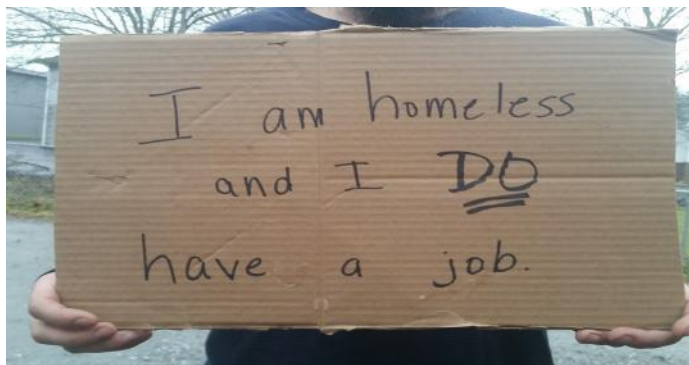 I am homeless
and I DO
have a job.